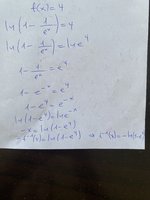 f(x)=4
ln(1-1/eˣ)=4
ln(1-1/eˣ)=ln e⁴
1-1/eˣ=e⁴
1-e⁻ˣ=e⁴
1-e⁴=e⁻ˣ
ln(1-e⁴)=ln e⁻ˣ
-x=ln(1-e⁴)
-f⁻¹(x)=ln(1-e⁴) ⇒ f⁻¹(x)=-ln(1-eˣ)